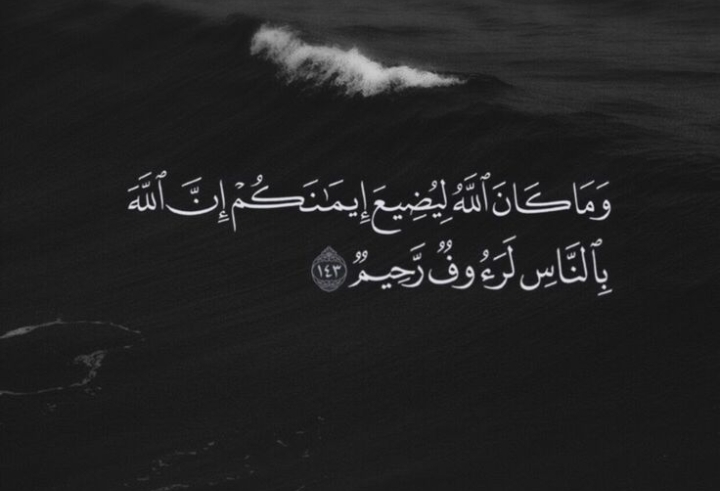 وَمَا كَانَ ٱللَّهُ لِيُضِيعَ إِيمَـٰنَكُمۡ إِنَّ ٱللَّهَ
بِٱلنَّاسِ لَرَءُوفٌ رَّحِيمٌ ١٤٣